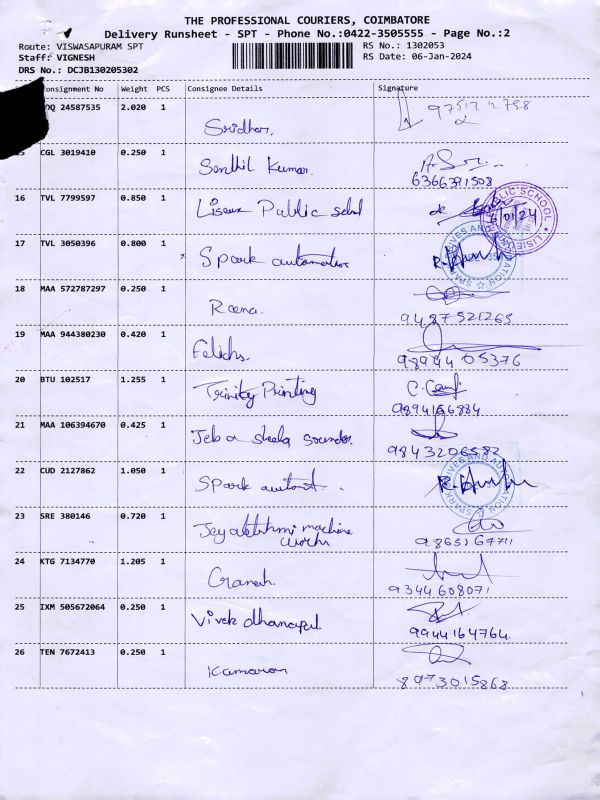 THE PROFESSIONAL COURIERS, COIMBATORE
Delivery Runsheet - SPT - Phone No.:0422-3505555 - Page No.:2
Route: VISWASAPURAM SPT RS No.: 1302053
Staff: VIGNESH RS Date: 06-Jan-2024
DRS No.: DCJB130205302
onsignment No Weight PCS Consignee Details Signature
24587535 2.020 1
Sridhar.
CGL 3019410 0.250 1
Senthil Kumar.
6366391508
16 TVL 7799597 0.850 1
Lisieux Public schl
6/01/24
17 TVL 3050396 0.800 1
Spark automation
18 MAA 572787297 0.250 1
Reena.
9487521265
19 MAA 944380230 0.420 1
Felichs.
98944 05376
20 BTU 102517 1.255 1
Trinity Printing
9894166884
21 MAA 106394670 0.425 1
Jeba sheela soundar.
9843206582
22 CUD 2127862 1.050 1
Spark automt.
23 SRE 380146 0.720 1
machine
works
24 KTG 7134770 1.205 1
Ganesh.
9344608071
25 IXM 505672064 0.250 1
Vivek dhanapal
9944164764.
26 TEN 7672413 0.250 1
Kamaron
8973015868